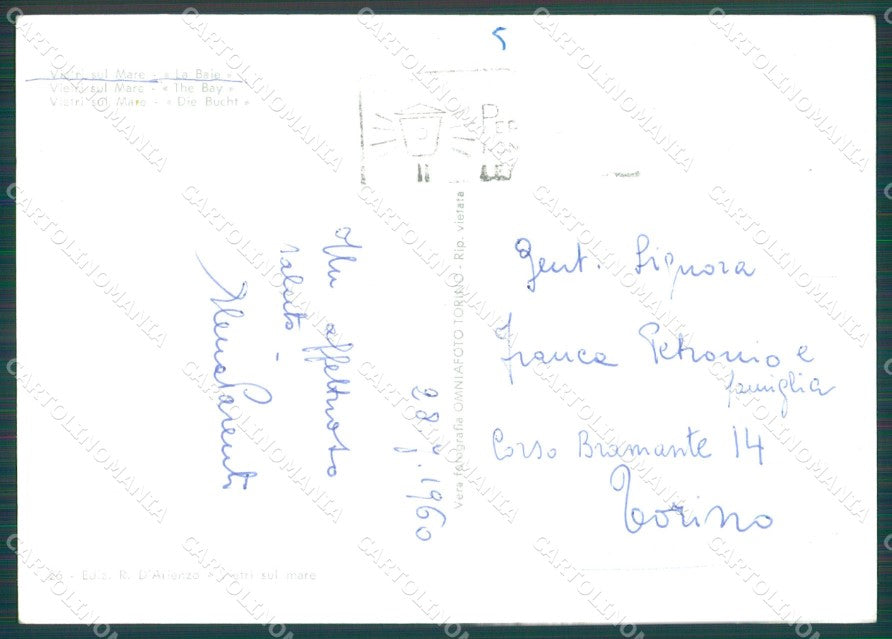 Vietri sul Mare - « La Baia »
Vietri sul Mare - « The Bay »
Vietri sul Mare - « Die Bucht »
5
Un affettuoso
saluto
28.7.1960
Vera fotografia OMNIAFOTO TORINO - Rip. vietata
Gent. Signora
Franca Petronio e
famiglia
Corso Bramante 14
Torino
26 - Ediz. R. D'Arienzo - Vietri sul mare
CARTOLINOMANIA